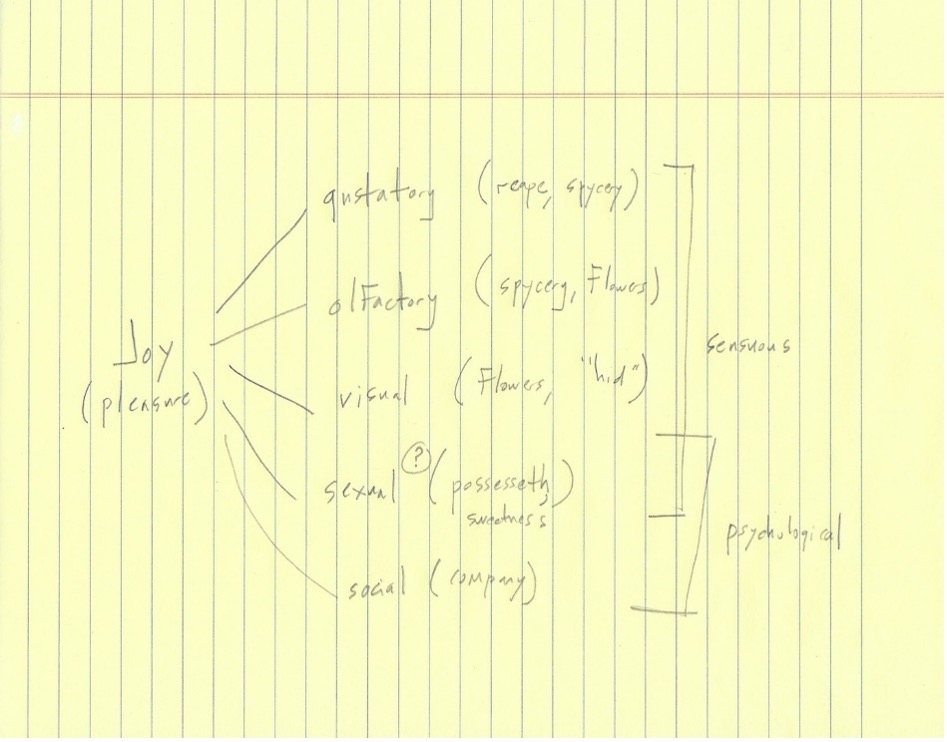 gustatory (reape, spycery)
olFactory (spycery, Flowers)
sensuous
Joy
(pleasure)
visual (Flowers, "hid")
sexual ? (possesseth,
sweetness)
psychological
social (company)